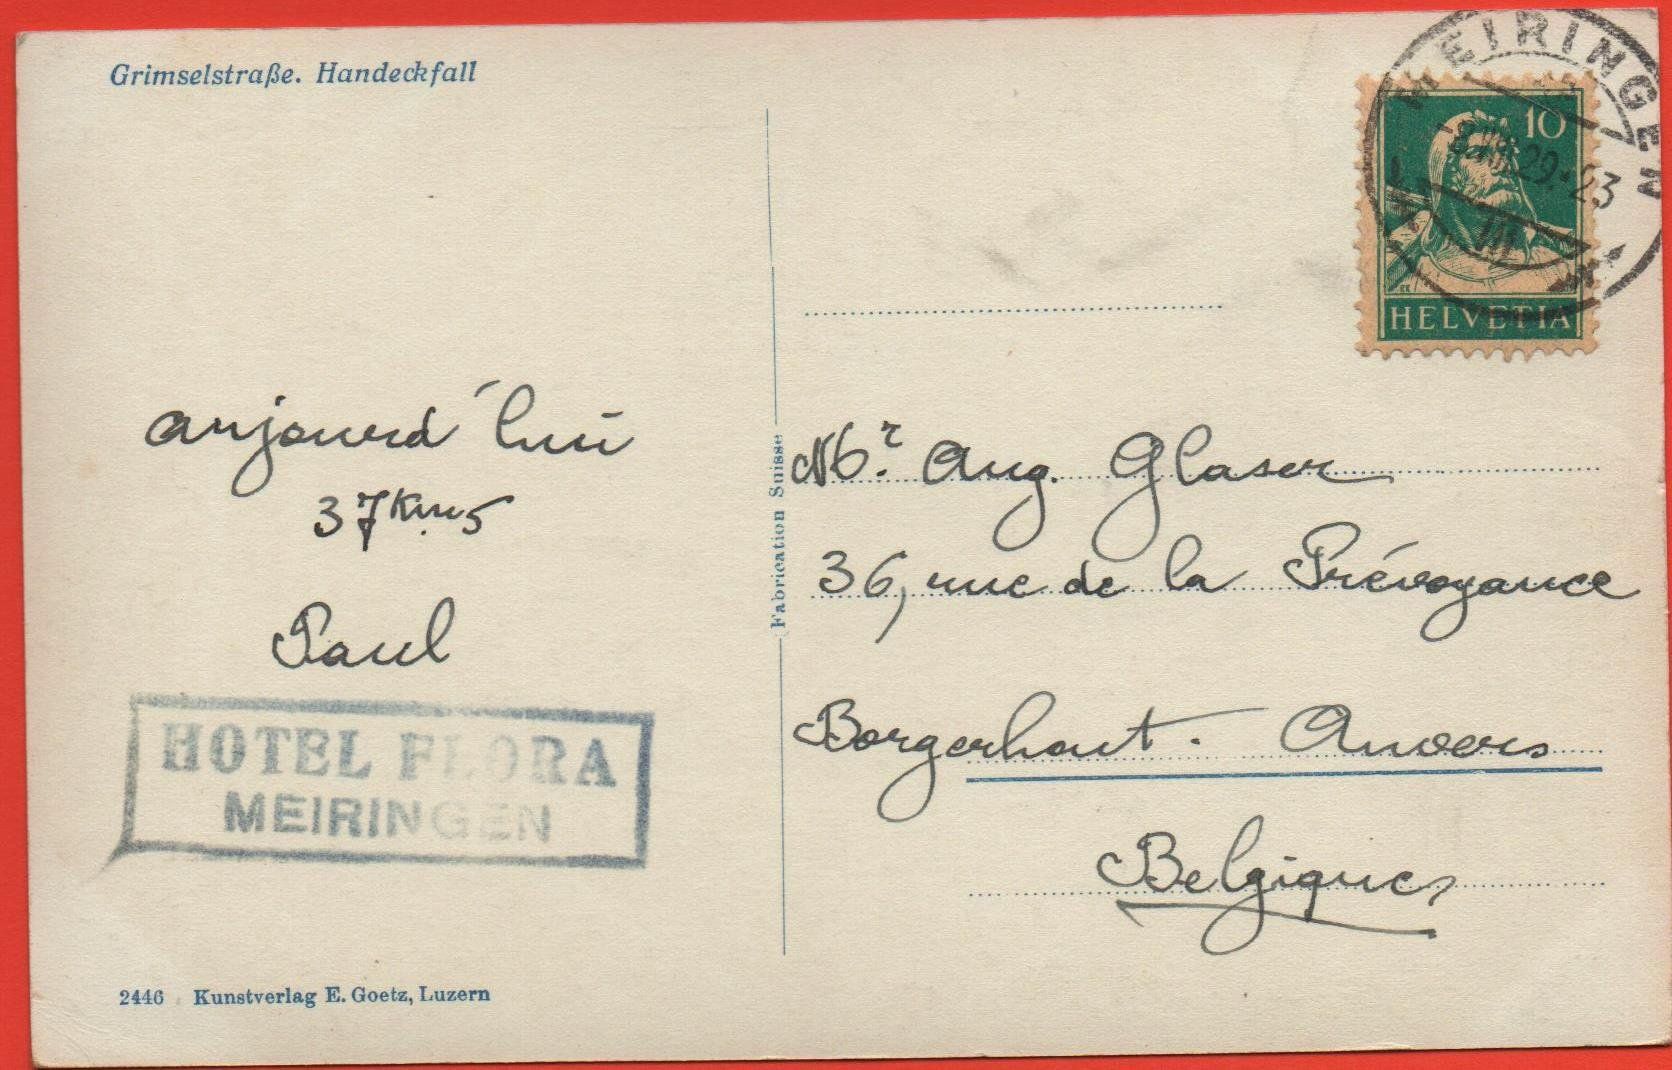 Grimselstraße. Handeckfall
MEIRINGEN
29.-23
10
HELVETIA
aujourd'hui
37 Kms
Paul
HOTEL FLORA
MEIRINGEN
2446 Kunstverlag E. Goetz, Luzern
Fabrication Suisse
Mr. Aug. Glaser
36, rue de la Prévoyance
Borgerhout. Anvers
Belgique